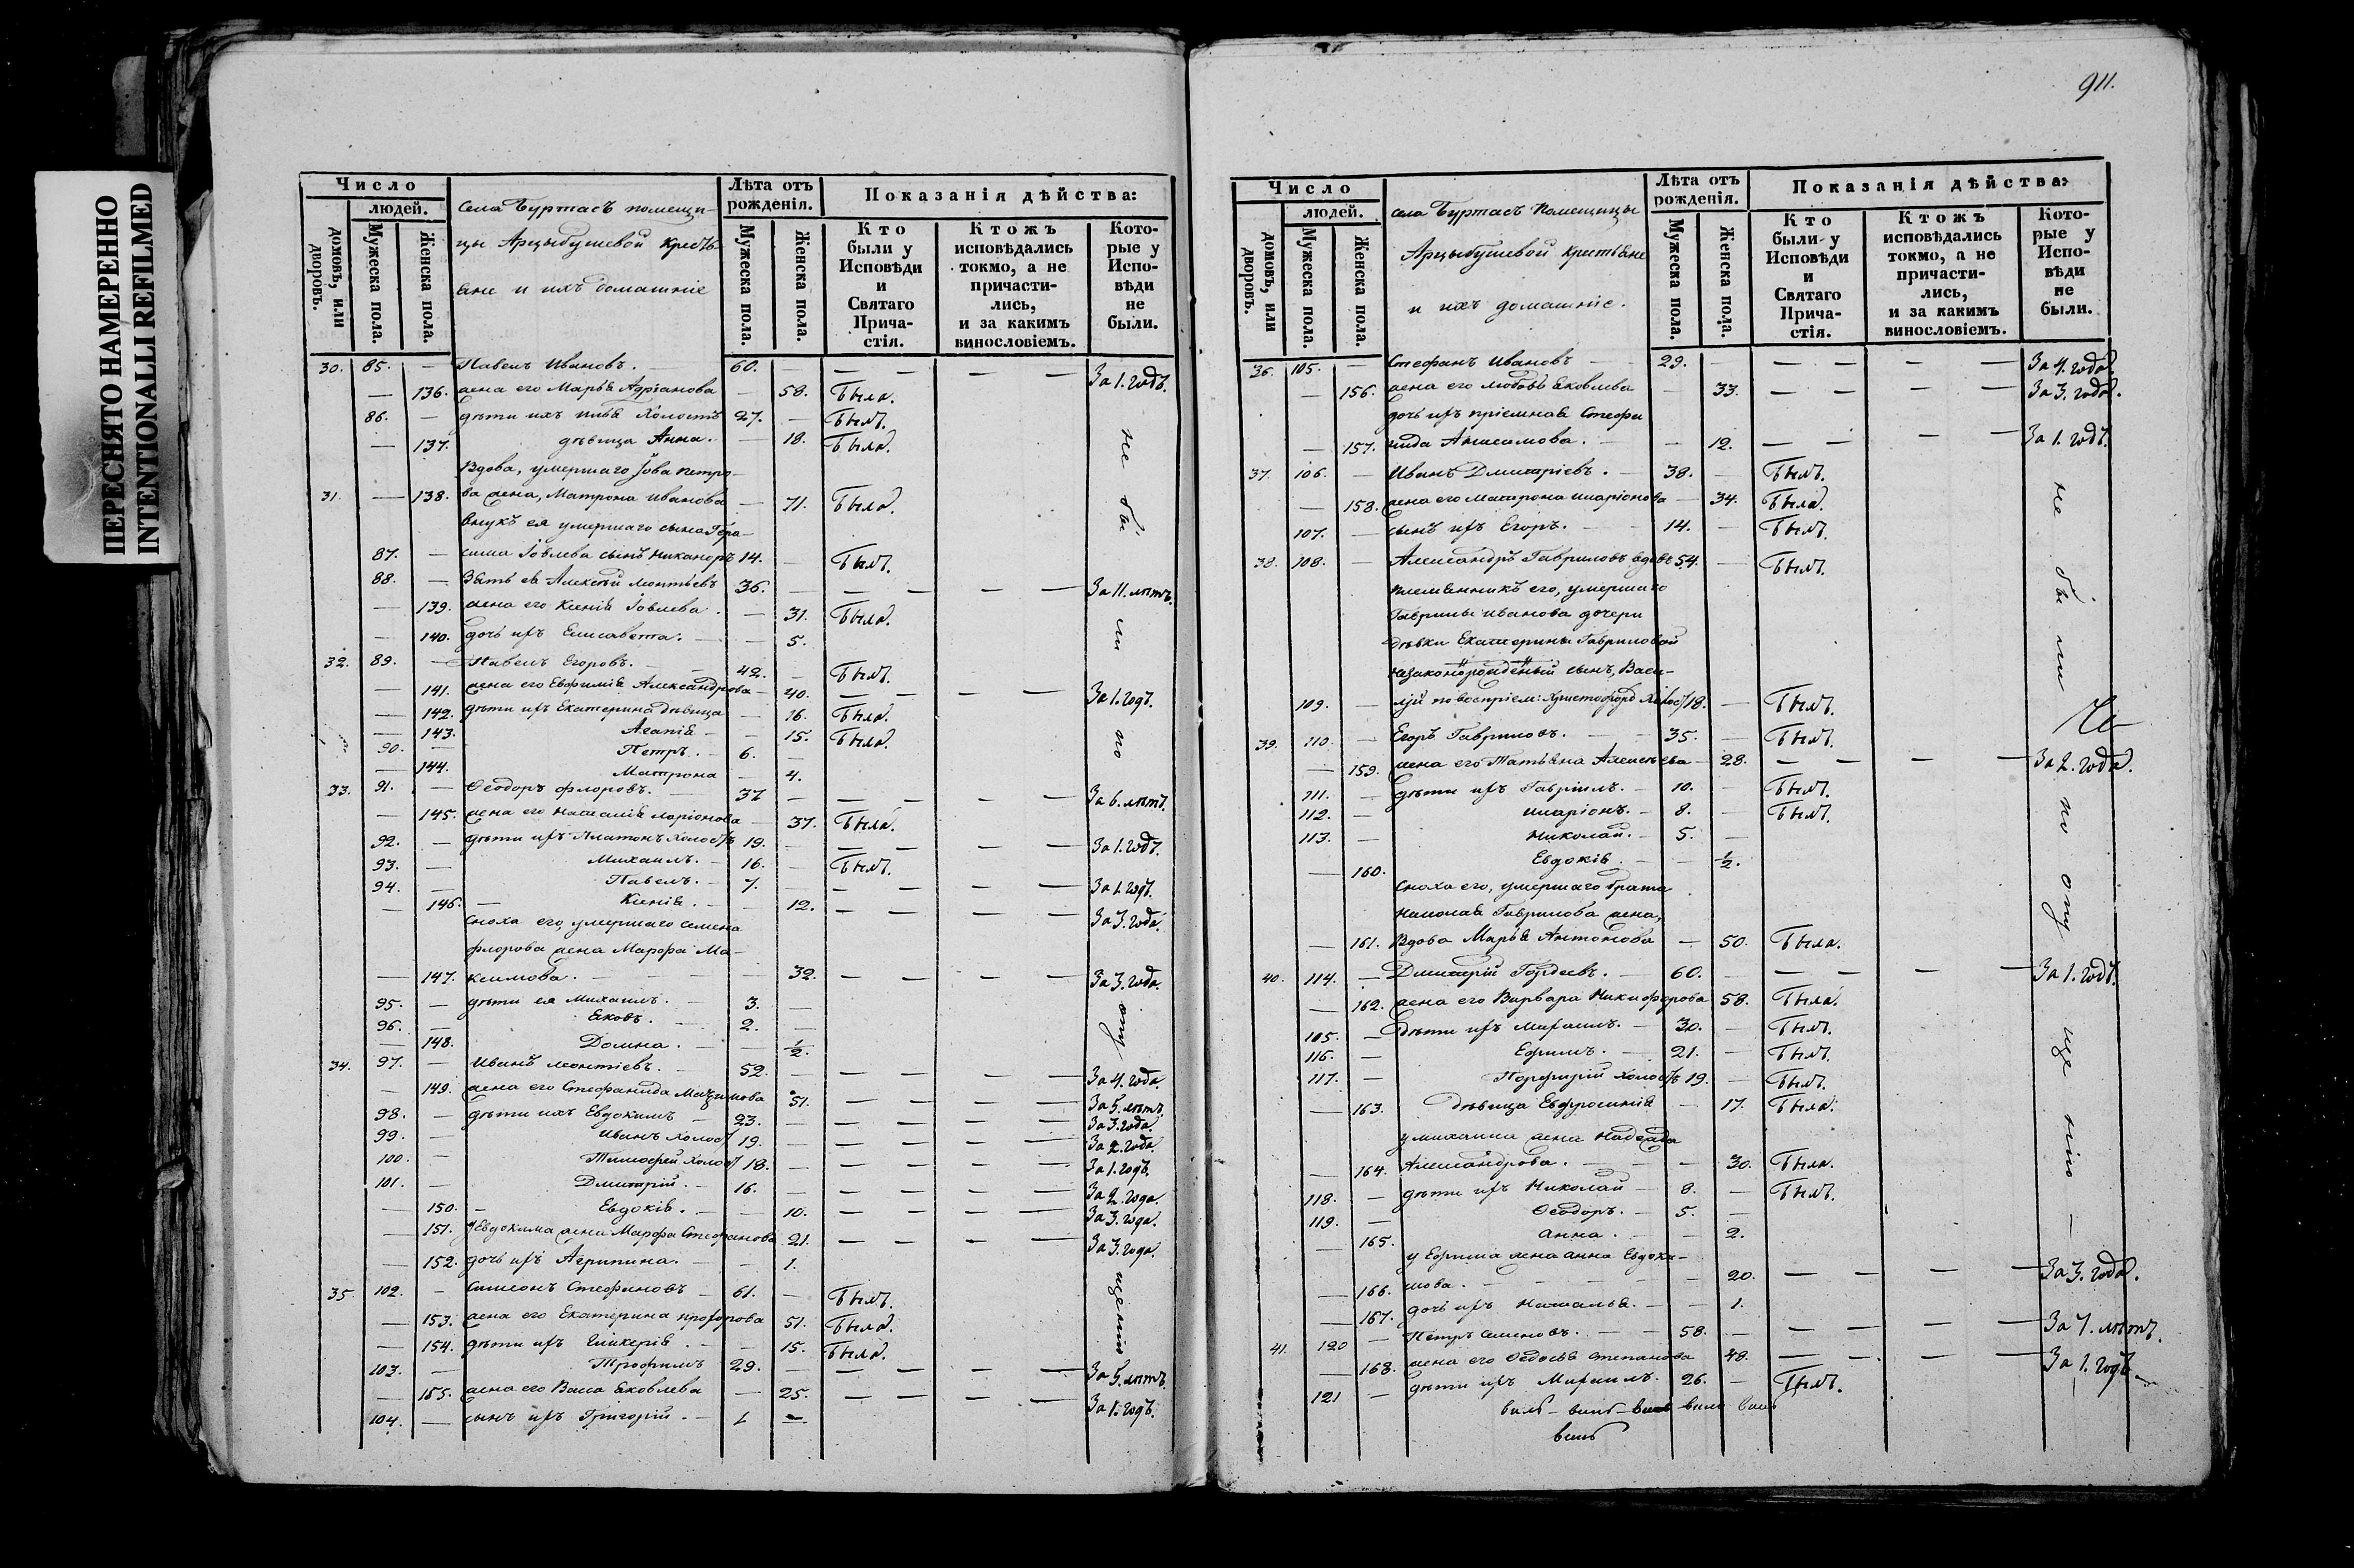 ПЕРЕСНЯТО НАМЕРЕННО
INTENTIONALLI REFILMED
Число
людей.
домовъ, или дворовъ.
Мужеска пола.
Женска пола.
села Буртасъ помещи-
цы Арцыбушевой кресть-
яне и ихъ домашніе
Лѣта отъ рожденія.
Мужеска пола.
Женска пола.
Показанія дѣйства:
Кто были у Исповѣди и Святаго Причастія.
Ктожъ исповѣдались токмо, а не причастились, и за какимъ винословіемъ.
Которые у Исповѣди не были.
30. 85. — Павелъ Ивановъ. 60. — — — — — За 1. годъ.
— 136. жена его Марья Адріанова — 58. Была.
86. — дѣти ихъ Илья холостъ 27. — Былъ.
— 137. дѣвица Анна. — 18. Была.
Вдова, умершаго Іова Петро-
31. — 138. ва жена, Матрона Иванова — 71. Была.
внукъ ея умершаго сына Гера-
87. — сима Іовлева сынъ Никаноръ 14. — Былъ.
88. — Зять ея Алексѣй Леонтьевъ 36. — — — — — За 11. лѣтъ.
— 139. жена его Ксенія Іовлева. — 31. Была.
— 140. дочь ихъ Елисавета. — — 5.
32. 89. — Павелъ Егоровъ. — 42. — Былъ.
— 141. жена его Евфимія Александрова — 40. — — — — За 1. годъ.
— 142. дѣти ихъ Екатерина дѣвица — 16. Была.
— 143. Агапія — — 15. Была.
90. — Петръ. — 6. —
— 144. Матрона — 4.
33. 91. — Ѳеодоръ Флоровъ. — 37 — — — — — За 6. лѣтъ.
— 145. жена его Наталія Ларіонова — 37. Была.
92. — дѣти ихъ Платонъ холостъ 19. — — — — — За 1. годъ.
93. — Михаилъ. — 16. — Былъ.
94. — Павелъ. — 7. — — — — — За 1. годъ.
— 146. — Ксенія. — — 12. — — — — За 3. года.
сноха его, умершаго Семена
Флорова жена Марфа Ма-
— 147. ксимова. — — — 32. — — — — За 3. года.
95. — дѣти ея Михаилъ. — 3. —
96. — Яковъ. — 2. —
— 148. Домна. — — ½.
34. 97. — Иванъ Леонтіевъ. — 52. — — — — — За 4. года.
— 149. жена его Стефанида Максимова 51. — — — — За 5. лѣтъ.
98. — дѣти ихъ Евдокимъ — 23. — — — — — За 3. года.
99. — Иванъ холостъ 19. — — — — — За 2. года.
100. — Тимофей холостъ 18. — — — — — За 1. годъ.
101. — Дмитрій. — 16. — — — — — За 2. года.
— 150. — Евдокія. — — 10. — — — — За 3. года.
— 151. У Евдокима жена Марфа Стефанова 21. — — — — За 3. года.
— 152. дочь ихъ Агрипина. — — 1.
35. 102. — Симеонъ Стефановъ — 61. — Былъ.
— 153. жена его Екатерина Прохорова 51. Была.
— 154. дѣти ихъ Гликерія. — — 15. Была.
103. — Трофимъ 29. — — — — — За 5. лѣтъ.
— 155. жена его Васса Яковлева — 25. — — — — За 1. годъ.
104. — сынъ ихъ Григорій. — 1 —
не бы ли по опу щенію
911.
Число
людей.
домовъ, или дворовъ.
Мужеска пола.
Женска пола.
села Буртасъ Помещицы
Арцыбушевой крестьяне
и ихъ домашніе.
Лѣта отъ рожденія.
Мужеска пола.
Женска пола.
Показанія дѣйства:
Кто были у Исповѣди и Святаго Причастія.
Ктожъ исповѣдались токмо, а не причастились, и за какимъ винословіемъ.
Которые у Исповѣди не были.
36. 105. — Стефанъ Ивановъ — 29. — — — — — За 4. года.
— 156. жена его Любовь Яковлева — 33. — — — — За 3. года.
дочь ихъ пріемная Стефа
— 157. нида Анисимова. — — 12. — — — — За 1. годъ.
37. 106. — Иванъ Дмитріевъ. — 38. — Былъ.
— 158. жена его Матрона Иларіонова — 34. Была.
107. — сынъ ихъ Егоръ. — 14. — Былъ.
38. 108. — Александръ Гавриловъ вдовъ 54. — Былъ.
племянникъ его, умершаго
Гаврилы Иванова дочери
дѣвки Екатерины Гавриловой
незаконорожденый сынъ, Васи-
109. — лій по воспріем: Христофоръ холостъ 18. — Былъ.
39. 110. — Егоръ Гавриловъ. — 35. — Былъ.
— 159. жена его Татьяна Алексѣева — 28. — — — — За 2. года.
111. — дѣти ихъ Гавріилъ. — 10. — Былъ.
112. — Иларіонъ. — 8. — Былъ.
113. — Николай. — 5. —
— 160. Евдокія. — — ½.
сноха его, умершаго брата
Николая Гаврилова жена,
— 161. Вдова Марья Антонова — 50. Была.
40. 114. — Дмитрій Гордеевъ. — 60. — — — — — За 1. годъ.
— 162. жена его Варвара Никифорова 58. Была.
105. — дѣти ихъ Михаилъ. — 30. — Былъ.
116. — Ефимъ. — 21. — Былъ.
117. — Порфирій холостъ 19. — Былъ.
— 163. дѣвица Евфросинія — 17. Была.
у Михаила жена Надежда
— 164. Александрова. — — — 30. Была.
118. — дѣти ихъ Николай — 8. — Былъ.
119. — Ѳеодоръ. — 5. —
— 165. Анна. — — 2.
у Ефима жена Анна Евдоки-
— 166. мова. — — — — 20. — — — — За 3. года.
— 167. дочь ихъ Наталья. — — 1.
41. 120 — Петръ Семеновъ. — — 58. — — — — — За 7. лѣтъ.
— 168. жена его Ѳедосья Степанова 48. — — — — За 1. годъ.
121 — дѣти ихъ Михаилъ. 26. — Былъ.
не бы ли по опу ще нію —